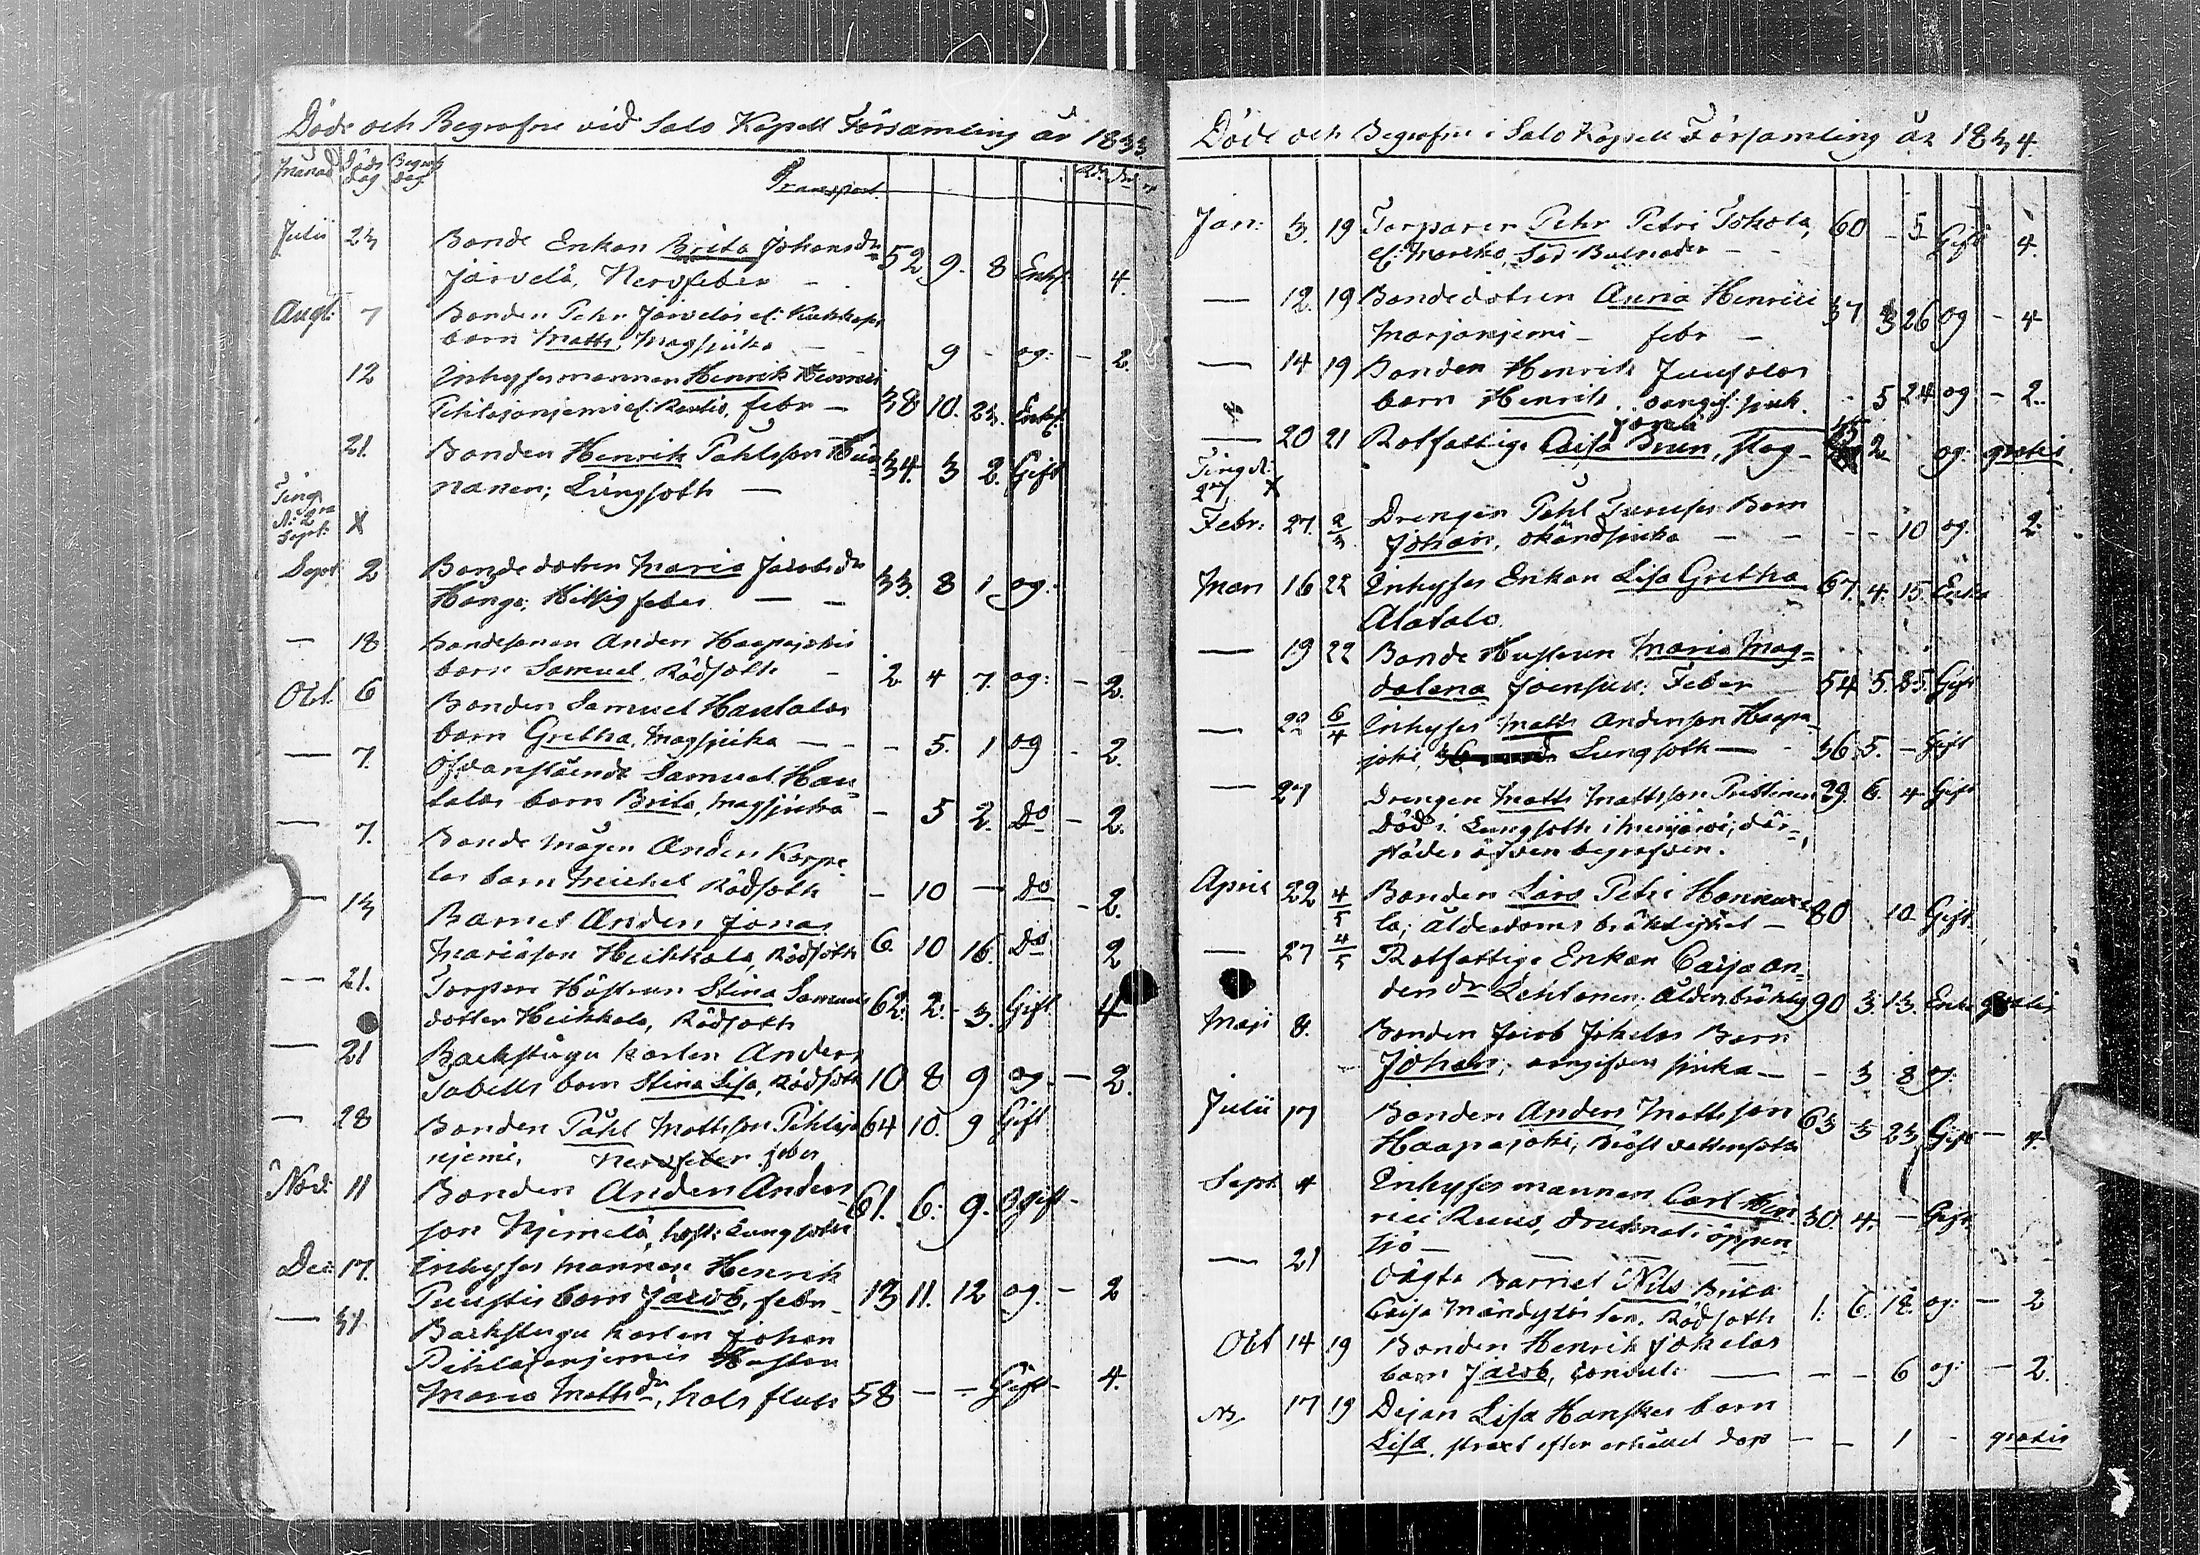 Döde och Begrafne vid Salo Kapell Församling år 1833
Månad Döds dag Begrafn dag
Transport
Julii 23 Bonde Enkan Brita Johansdr 52 9 8 Enka 4.
Järvelä, Nervfeber
Aug: 7 Bonden Pehr Järveläs
barn Matts, Magsjuka 9 - og: - 2.
12 Inhysesmannen Henrik Henrici
febr 38 10. 23.
21. Bonden Henrik Påhlsson 34. 3 2. Gift
nanen; Lungsoth
Sept: X
Sept 2 Bonde dotren Maria Jakobsdr 33. 8 1 og:
Hanga; Hitsig feber
- 18 Bondesonen Anders Haapajokis
barn Samuel, Rödsoth 2 4 7. og: - 2.
Oct. 6 Bonden Samuel Hautalas
barn Gretha, Magsjuka - 5. 1 og - 2.
- 7. Ofvanstående Samuel Hau=
talas barn Brita, Magsjuka - 5 2. Do - 2.
- 7. Bonde Mågen Anders Korpe=
las barn Michel Rödsoth - 10 - Do - 2.
- 13 Barnet Anders Jonas
Mariäson Heikkola, Rödsoth 6. 10 16. Do 2
- 21. Torpare Hustrun Stina Samuels
dotter Heikkola, Rödsoth 62. 2. 3. Gift 4
- 21 Backstugu karlen Anders
Sabells barn Stina Lisa, Rödsoth 10 8 9 og - 2.
- 28 Bonden Påhl Mattsson Pihlaja 64 10. 9 Gift
njemi, Nervfeber feber
Nov: 11 Bonden Anders Anders 61. 6: 9. Ogift
son Njemelä, Lungsoth
Dec: 17. Inhyses mannen Henrik
Puustis barn Jacob, febr 13 11. 12 og. - 2
- 31 Backstugu karlen Johan
Pihlajanjemis Hustru
Maria Mattsdr, hals fluss 58 - - Gift - 4.
Döde och Begrafne i Salo Kapell Församling år 1834.
Jan: 3. 19 Torparen Pehr Petri Tokola, 60 - 5 Gift 4.
- 12. 19 Bondedotren Anna Henrici 37 3 26 og - 4
Marjanjemi - febr -
- 14 19 Bonden Henrik Juusolas
barn Henrik, oangif. sjuk. - 5 24 og - 2.
- 20 21 Rotfattige Caisa Brun, slag 2 og: gratis
Ting d.
27 X
Febr: 27. 2/3 Drengen Pehl Juusos Barn
Johan, okändsjuka - - 10 og. 2
Mars 16 22 Inhyses Enkan Lisa Gretha 67. 4. 15. Enka
Alatalo
- 19 22 Bonde Hustrun Maria Mag=
dalena Joensuu: Feber 54 5. 25. Gift
- 22 6/4 Inhyses Matts Andersson Haapa=
joki, Lungsoth 36 5. - Gift
- 27 Drengen Matts Mattsson 29. 6. 4 Gift
Död i Lungsoth i Merijärvi, där=
städes äfven begrafven.
April 22 4/5 Bonden Lars Petri Hannuxe
la; ålderdoms bräcklighet 80 10 Gift.
- 27 4/5 Rotfattige Enkan Caisa An=
dersdr Lehtonen. Ålderbräcklig 90 3. 13. Enka gratis
Maji 8. Bonden Jacob Jokelas Barn
Johan, oangifven sjuka - 3 8 og.
Julii 17 Bonden Anders Mattsson 63 3 23 Gift - 4.
Haapajoki, Bröst vattensoth
Sept. 4 Inhyses mannen Carl Hen
rici Ruus, drunknat i öppen 30. 4. - Gift
sjö
- 21 Oägta Barnet Nils Brita
Caisa Mändyläs son, Rödsoth 1. 6. 18. og: - 2
Oct 14 19 Bonden Henrik Jokelas
barn Jacob, convuls: - - 6 og: - 2.
17 19 Dejan Lisa Hanskes barn
Lisa, straxt efter erhållet dop - - 1 - gratis